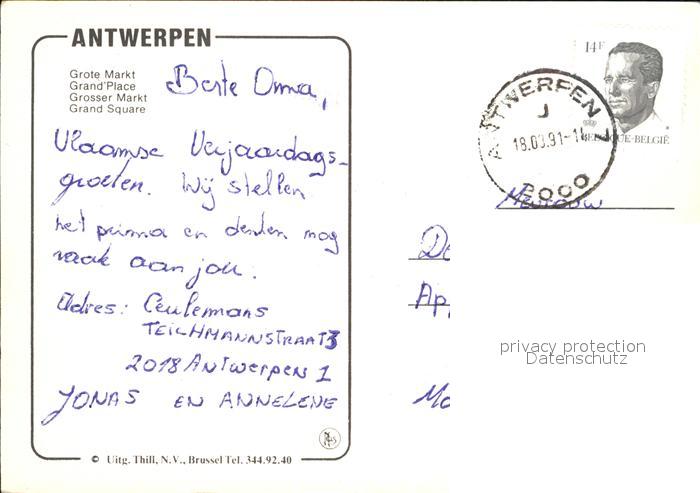 ANTWERPEN
Grote Markt
Grand'Place
Grosser Markt
Grand Square
Beste Oma,
Vlaamse Verjaardags-
groeten. Wij stellen
het prima en denken nog
vaak aan jou.
Adres: Ceulemans
TEICHMANNSTRAAT 3
2018 ANTWERPEN 1
JONAS EN ANNELENE
© Uitg. Thill, N.V., Brussel Tel. 344.92.40
14F
BELGIQUE-BELGIË
ANTWERPEN J
J
18.03.91-14
2000
Mevrouw
De
Ap
Mo
privacy protection
Datenschutz